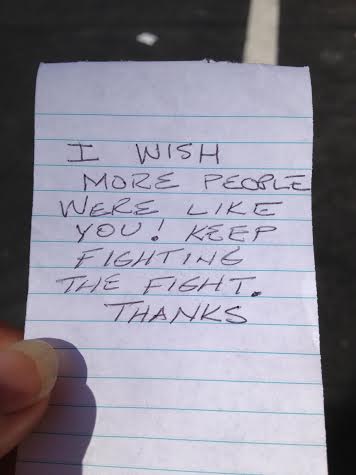 I WISH
MORE PEOPLE
WERE LIKE
YOU! KEEP
FIGHTING
THE FIGHT.
THANKS